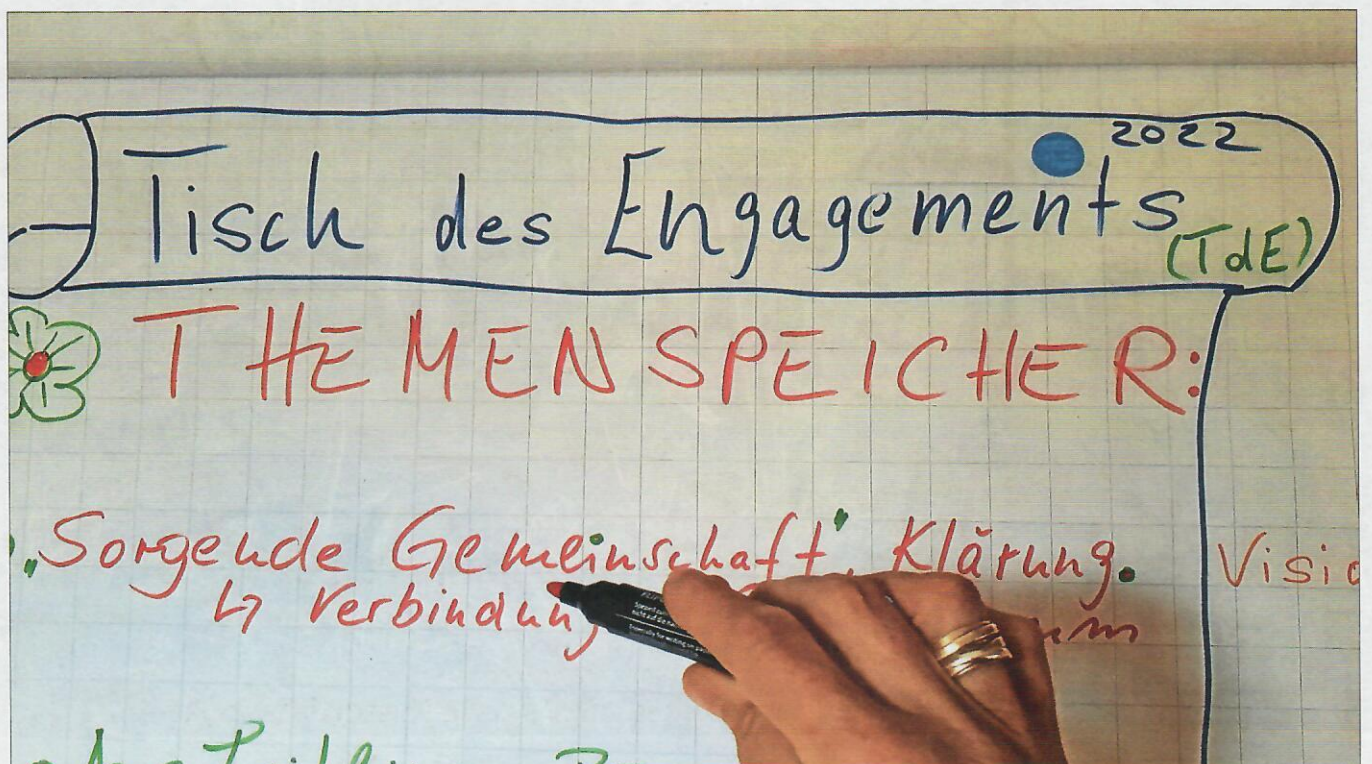 2022
Tisch des Engagements
(TdE)
THEMENSPEICHER:
„Sorgende Gemeinschaft", Klärung.
↳ Verbindung
Visio